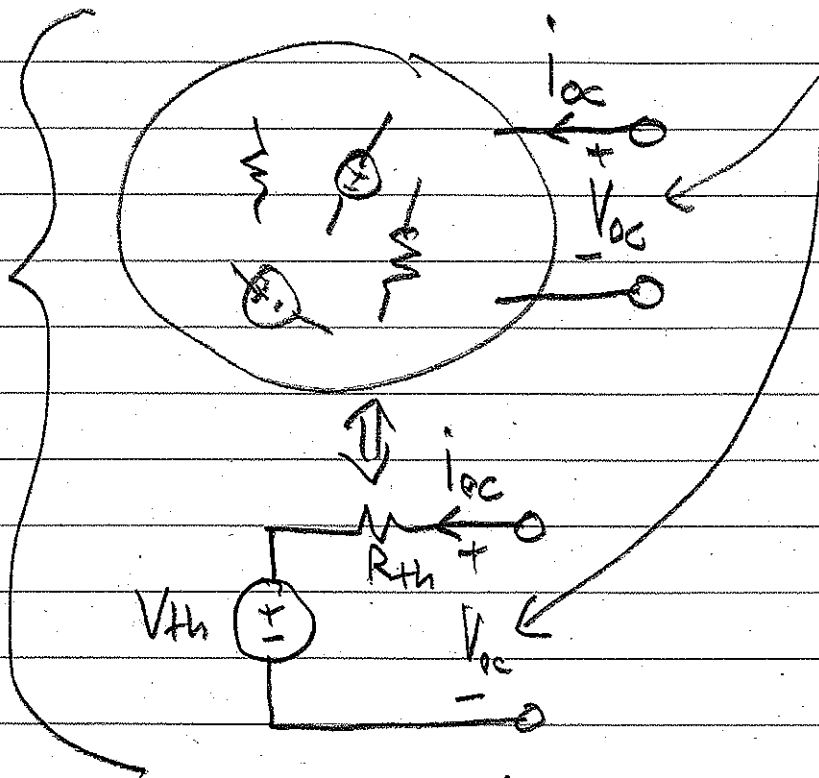 i_oc
+
V_oc
-
i_oc
R_th
+
V_th
+
-
V_oc
-